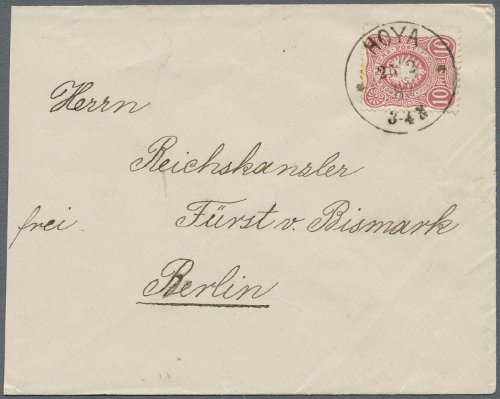 HOYA
25 2
3-4 N
10
10
Herrn
Reichskanzler
frei. Fürst v. Bismark
Berlin